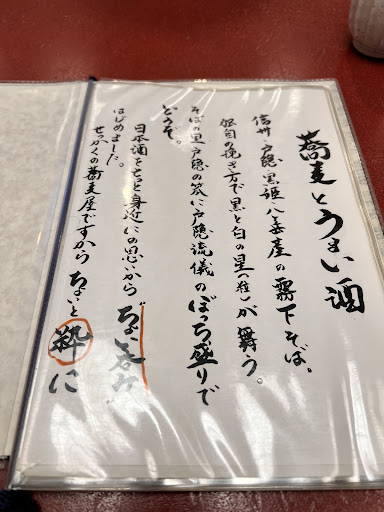 蕎麦とうまい酒
信州・戸隠・黒姫・八ヶ岳産の霧下そば。
独自の挽き方で黒と白の星(粒)が舞う。
そばの里戸隠の笊に戸隠流儀のぼっち盛りで
どうぞ。
日本酒をもっと身近にの思いから"ちょい呑み"
はじめました。
せっかくの蕎麦屋ですからちょいと粋に